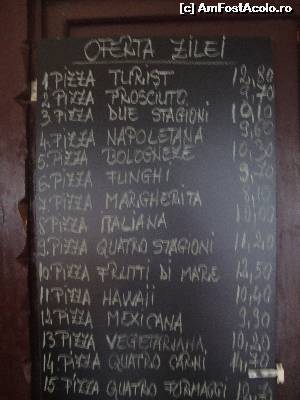 (c) AmFostAcolo.ro
OFERTA ZILEI
1 PIZZA TURIST 12,80
2 PIZZA PROSCIUTO 9,70
3 PIZZA DUE STAGIONI 10,10
4. PIZZA NAPOLETANA 9,60
5. PIZZA BOLOGNEZE 10,30
6 PIZZA FUNGHI 9,70
7 PIZZA MARGHERITA 8,10
8 PIZZA ITALIANA
9. PIZZA QUATRO STAGIONI 11,20
10 PIZZA FRUTTI DI MARE 12,50
11 PIZZA HAWAII 10,40
12 PIZZA MEXICANA 9,90
13 PIZZA VEGETARIANA 10,20
14. PIZZA QUATRO CARNI
15 PIZZA QUATRO FORMAGGI